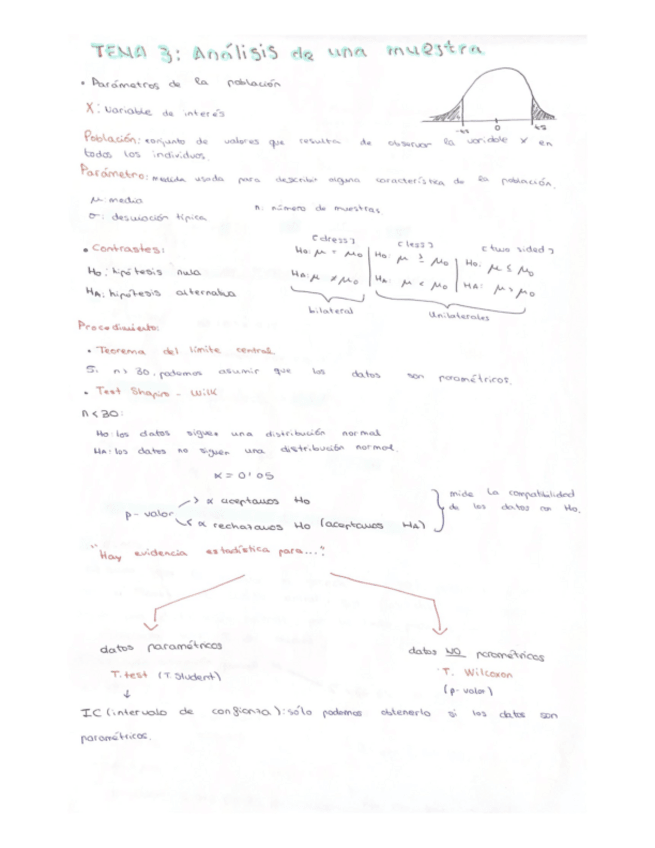 TEMA 3: Análisis de una muestra
• Parámetros de la población
X: Variable de interés
0
Población: conjunto de valores que resulta de observar la variable X en
todos los individuos.
Parámetro: medida usada para describir alguna característica de la población.
μ: media
n: número de muestras
σ: desviación típica
• Contrastes:
H₀: hipótesis nula
HA: hipótesis alternativa
[less] [two sided]
H₀: μ = μ₀ H₀: μ ≥ μ₀ H₀: μ ≤ μ₀
HA: μ ≠ μ₀ HA: μ < μ₀ HA: μ > μ₀
bilateral Unilaterales
Procedimiento:
• Teorema del límite central
Si n > 30, podemos asumir que los datos son paramétricos.
• Test Shapiro - Wilk
n < 30:
H₀: los datos siguen una distribución normal
HA: los datos no siguen una distribución normal.
α = 0'05
p-valor
> α aceptamos H₀
< α rechazamos H₀ (aceptamos HA)
mide la compatibilidad
de los datos con H₀.
"Hay evidencia estadística para...?
datos paramétricos
T.test (T. Student)
↓
datos NO paramétricos
T. Wilcoxon
(p-valor)
IC (intervalo de confianza): sólo podemos obtenerlo si los datos son
paramétricos.